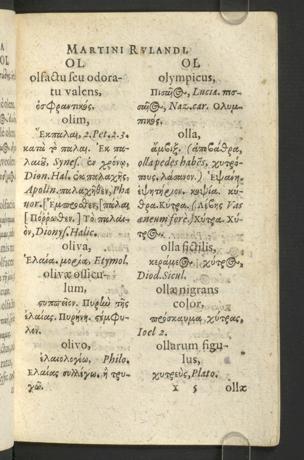 MARTINI RVLANDI,
OL
olfactu seu odora-
tu valens,
ὀσφραντικός.
olim,
Ἔκπαλαι, 2. Pet. 2. 3.
κατὰ τὸ πάλαι. Ἐκ πα-
λαιῶ, Synes. ἐν χρόνῳ,
Dion. Hal.
Apolin. παλαχῆθεν, Pha
nor. [Ἔμπροσθεν, [πάλαι
[Πόρρωθεν.] Τὸ παλαι-
όν, Dionys. Halic.
oliva,
Ἐλαία. μορία, Etymol.
olivæ ossicu-
lum,
Πυρὴν τῆς
ἐλαίας. Πυρήνη.
olivo,
ἐλαιολογέω, Philo.
Ἐλαίας συλλέγω. ἢ τρυ-
γῶ.
OL
olympicus,
Πισαῖος, Lucia. πισ-
σαῖος, Naz. car. Ολυμ-
πικός.
olla,
ἄμβιξ. (
olla pedes habēs, χυτρό-
πους, λάσανον.) Ἑψάνη.
ἑψητήριον. κυψία. κύ-
θρα. Κύτρα. (Λέβης Vas
aneum fore.) Χύτρα. Χύ-
τρος.
olla fictilis,
κέραμος, χύτρος,
Diod. Sicul.
ollæ nigrans
color,
πρόσκαυμα χύτρας,
Ioel 2.
ollarum figu-
lus,
χυτρεύς, Plato.
1 5 ollæ